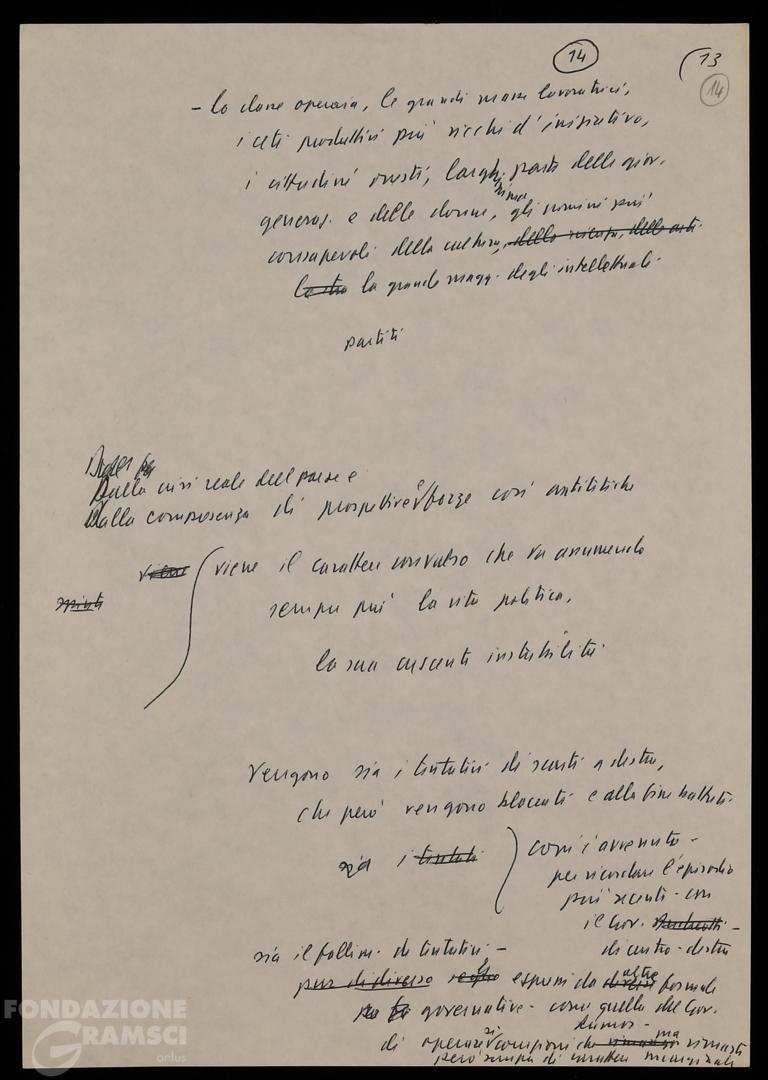 14
13
14
- la classe operaia, le grandi masse lavoratrici,
i ceti produttivi più ricchi d'iniziativa,
i cittadini onesti, larghissima parte delle giov.
generaz. e delle donne, gli uomini più
consapevoli della cultura, della scienza, delle arti
la grande magg. degli intellettuali.
partiti
Dalla crisi reale del paese e
Dalla compresenza di prospettive e forze così antitetiche
viene il carattere convulso che va assumendo
sempre più la vita politica,
la sua crescente instabilità
vengono sia i tentativi di svolte a destra,
che però vengono bloccati e alla fine battuti
sia i tentativi
com'è avvenuto -
per ricordare l'episodio
più recente - con
il Gov. Andreotti -
di centro-destra
sia il fallim. di tentativi -
pur di diverso espressi da altre formule
governative - come quello del Gov.
Rumor -
di operazioni che rimasti
però sempre di carattere marginale
FONDAZIONE
GRAMSCI
onlus